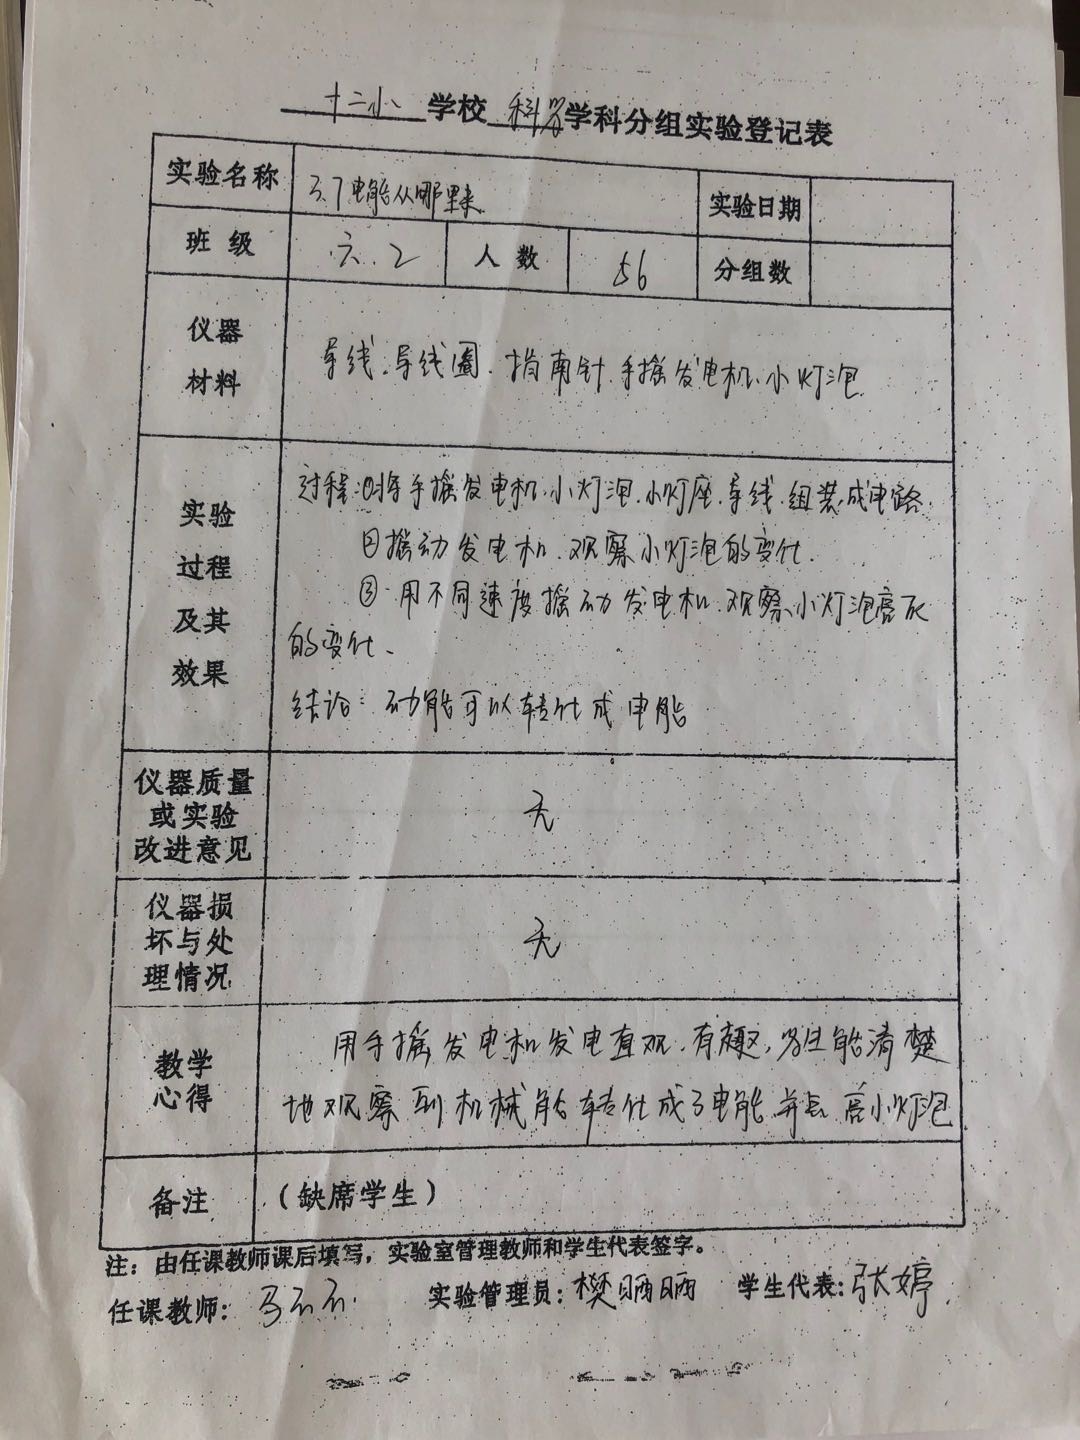 十二小 学校 科学学科分组实验登记表
实验名称 3.7电能从哪里来 实验日期
班级 六.2 人数 56 分组数
仪器
材料
导线.导线圈.指南针.手摇发电机.小灯泡
实验
过程
及其
效果
过程:①将手摇发电机.小灯泡.小灯座.导线.组装成电路.
②摇动发电机.观察小灯泡的变化.
③.用不同速度摇动发电机.观察小灯泡亮灭
的变化.
结论:动能可以转化成电能
仪器质量
或实验
改进意见
无
仪器损
坏与处
理情况
无
教学
心得
用手摇发电机发电直观.有趣,学生能清楚
地观察到机械能转化成了电能并点亮小灯泡
备注 (缺席学生)
注:由任课教师课后填写,实验室管理教师和学生代表签字。
任课教师: 实验管理员:樊丽丽 学生代表:张婷